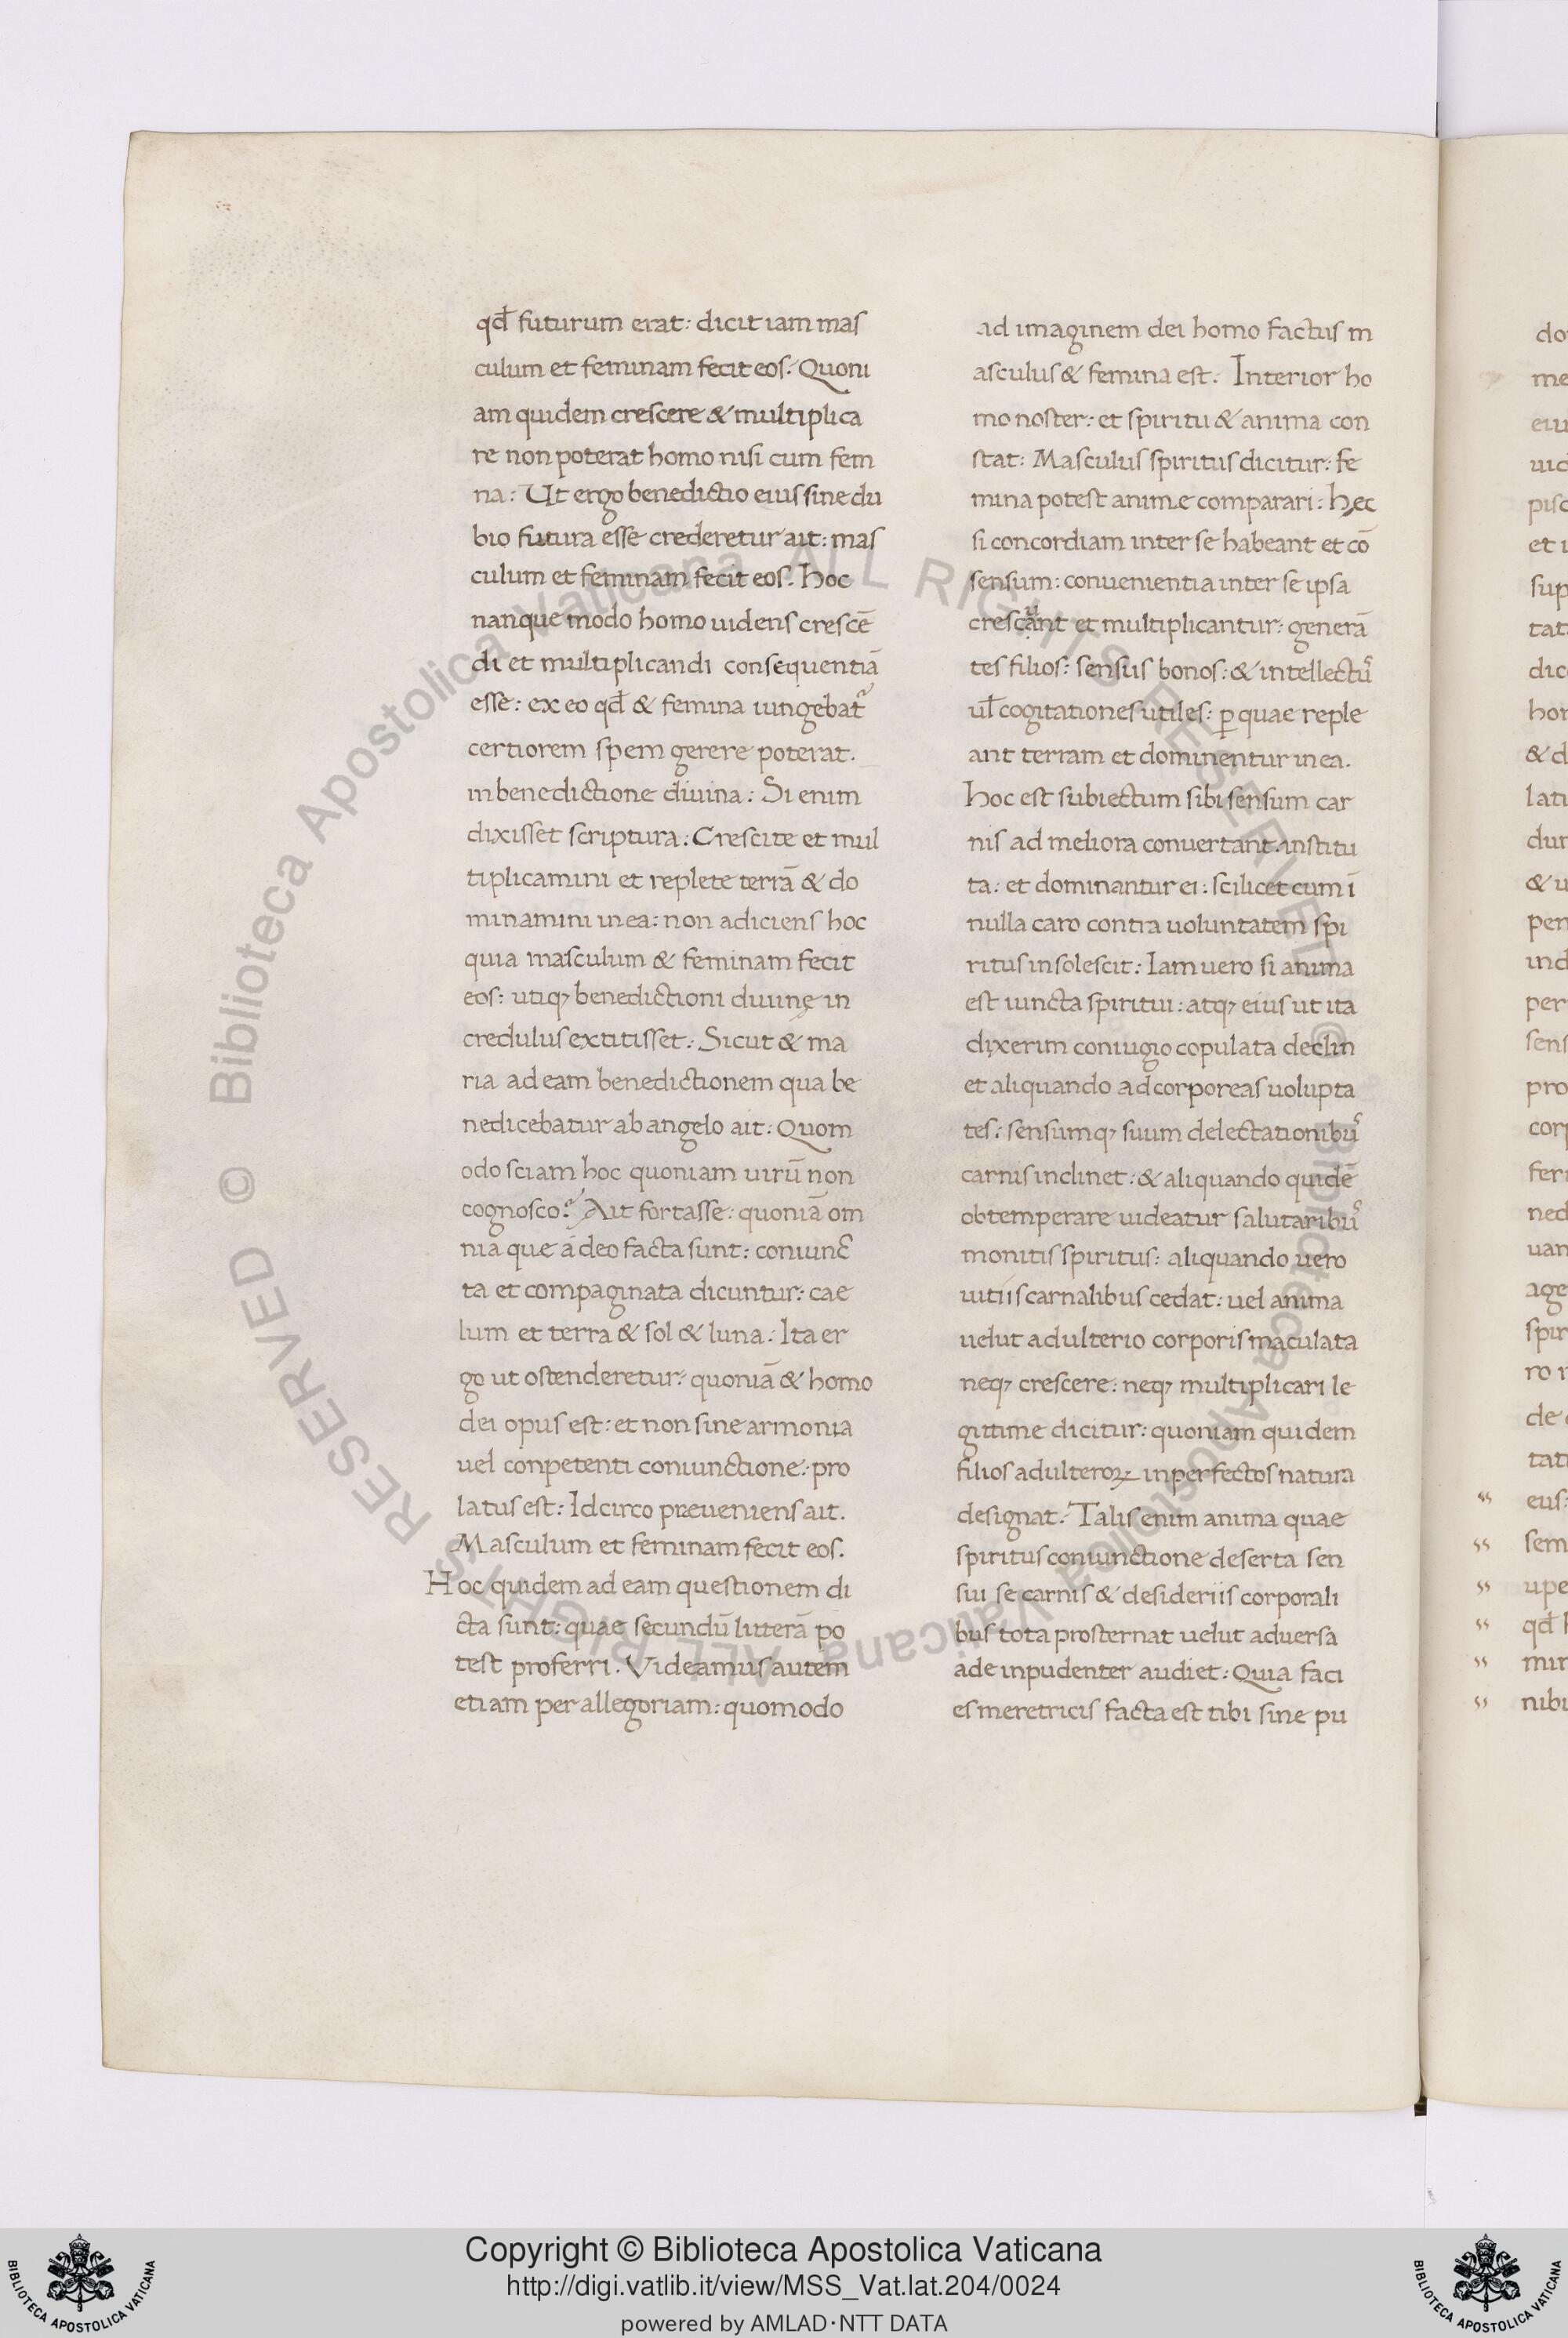 qđ futurum erat: dicit iam mas
culum et feminam fecit eos. Quoni
am quidem crescere & multiplica
re non poterat homo nisi cum fem
na: Ut ergo benedictio eius sine du
bio futura esse crederetur ait: mas
culum et feminam fecit eos. hoc
nanque modo homo uidens crescē
di et multiplicandi consequentiā
esse: ex eo qđ & femina iungebat᷑
certiorem spem gerere poterat.
in benedictione diuina: Si enim
dixisset scriptura: Crescite et mul
tiplicamini et replete terrā & do
minamini in ea: non adiciens hoc
quia masculum & feminam fecit
eos: utiqꝫ benedictioni diuinę in
credulus extitisset: Sicut & ma
ria ad eam benedictionem qua be
nedicebatur ab angelo ait: Quom
odo sciam hoc quoniam uirū non
cognosco? Ait fortasse: quoniā om
nia que á deo facta sunt: coniunc
ta et compaginata dicuntur: cae
lum et terra & sol & luna: Ita er
go ut ostenderetur: quoniā & homo
dei opus est: et non sine armonia
uel conpetenti coniunctione: pro
latus est: Idcirco pręueniens ait.
Masculum et feminam fecit eos.
Hoc quidem ad eam questionem di
cta sunt: quae secundū litterā po
test proferri. Videamus autem
etiam per allegoriam: quomodo
ad imaginem dei homo factus m
asculus & femina est: Interior ho
mo noster: et spiritu & anima con
stat: Masculus spiritus dicitur: fe
mina potest animę comparari: hęc
si concordiam inter se habeant et cō
sensum: conuenientia inter se ipsa
crescant et multiplicantur: generā
tes filios: sensus bonos: & intellectuꝰ
ul̄ cogitationes utiles: ꝑ quae reple
ant terram et dominentur in ea.
hoc est subiectum sibi sensum car
nis ad meliora conuertant institu
ta: et dominantur ei: scilicet cum ī
nulla caro contra uoluntatem spi
ritus insolescit: Iam uero si anima
est iuncta spiritui: atqꝫ eius ut ita
dixerim coniugio copulata declin
et aliquando ad corporeas uolupta
tes: sensumqꝫ suum delectationibuꝰ
carnis inclinet: & aliquando quidē
obtemperare uideatur salutaribuꝰ
monitis spiritus: aliquando uero
uitiis carnalibus cedat: uel anima
uelut adulterio corporis maculata
neqꝫ crescere: neqꝫ multiplicari le
gitime dicitur: quoniam quidem
filios adulteroꝝ inperfectos natura
designat: Talis enim anima quae
spiritus coniunctione deserta sen
sui se carnis & desideriis corporali
bus tota prosternat uelut aduersa
ade inpudenter audiet: Quia faci
es meretricis facta est tibi sine pu
Copyright © Biblioteca Apostolica Vaticana
http://digi.vatlib.it/view/MSS_Vat.lat.204/0024
powered by AMLAD·NTT DATA